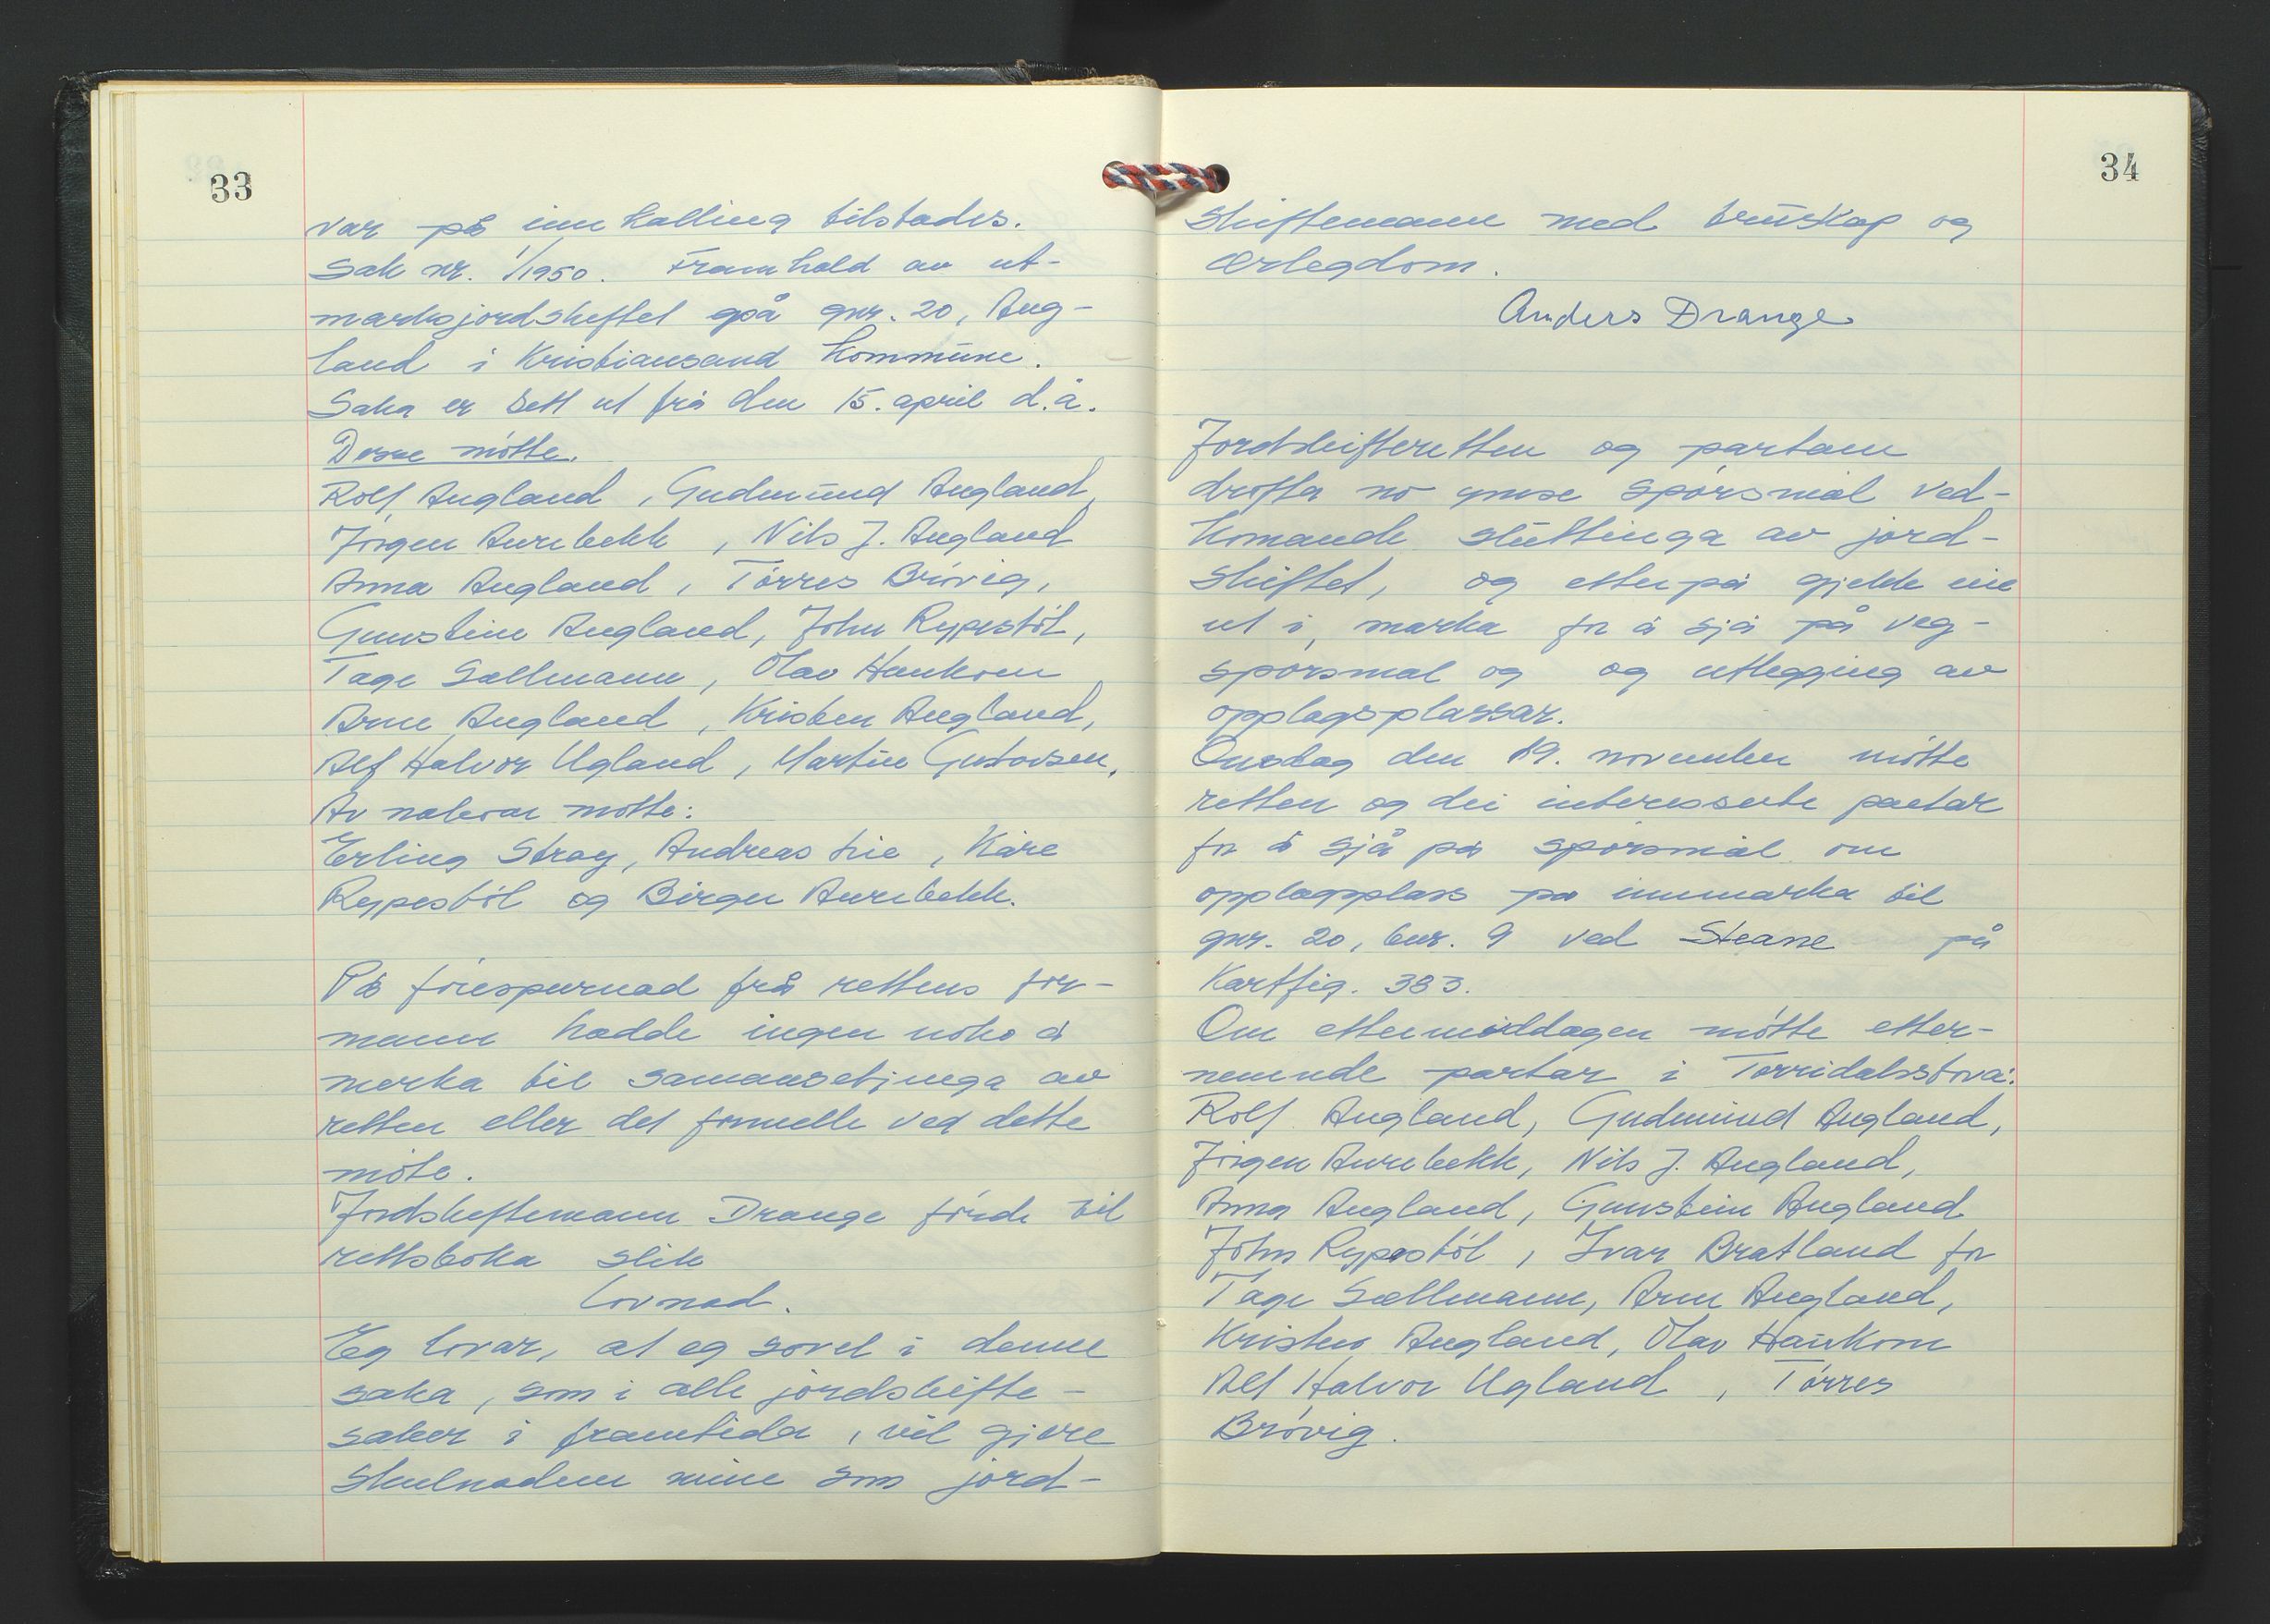 33
var på innkalling tilstades.
Sak nr. 1/1950. Framhald av ut-
marksjordskiftet på gnr. 20, Aug-
land i Kristiansand kommune.
Saka er sett ut frå den 15. april d.å.
Desse møtte.
Rolf Augland, Gudmund Augland,
Jørgen Aurebekk, Nils J. Augland
Anna Augland, Tørres Brøvig,
Gunstein Augland, John Rypestøl,
Tage Sællmann, Olav Haukom
Arne Augland, Kristen Augland,
Alf Halvor Ugland, Martin Gustavsen.
Av naboar møtte:
Erling Stray, Andreas Lie, Kåre
Rypestøl og Birger Aurebekk.
På førespurnad frå rettens for-
mann hadde ingen noko å
merka til samansetjinga av
retten eller det formelle ved dette
møte.
Jordskiftemann Drange førde til
rettsboka slik
Lovnad.
Eg lovar, at eg sovel i denne
saka, som i alle jordskifte-
saker i framtida, vil gjere
skulnadene mine som jord-
34
skiftemann med truskap og
ærlegdom.
Anders Drange
Jordskifteretten og partane
drøfta no ymse spørsmål ved-
komande sluttinga av jord-
skiftet, og etterpå gjekk ein
ut i marka for å sjå på veg-
spørsmål og og utlegging av
opplagsplassar.
Onsdag den 19. november møtte
retten og dei interesserte partar
for å sjå på spørsmål om
opplagsplass på innmarka til
gnr. 20, bnr. 9 ved Steane på
Kartfig. 383.
Om ettermiddagen møtte etter-
nemnde partar i Torridalsstova:
Rolf Augland, Gudmund Augland,
Jørgen Aurebekk, Nils J. Augland,
Anna Augland, Gunstein Augland
John Rypestøl, Ivar Bratland for
Tage Sællmann, Arne Augland,
Kristen Augland, Olav Haukom
Alf Halvor Ugland, Tørres
Brøvig.